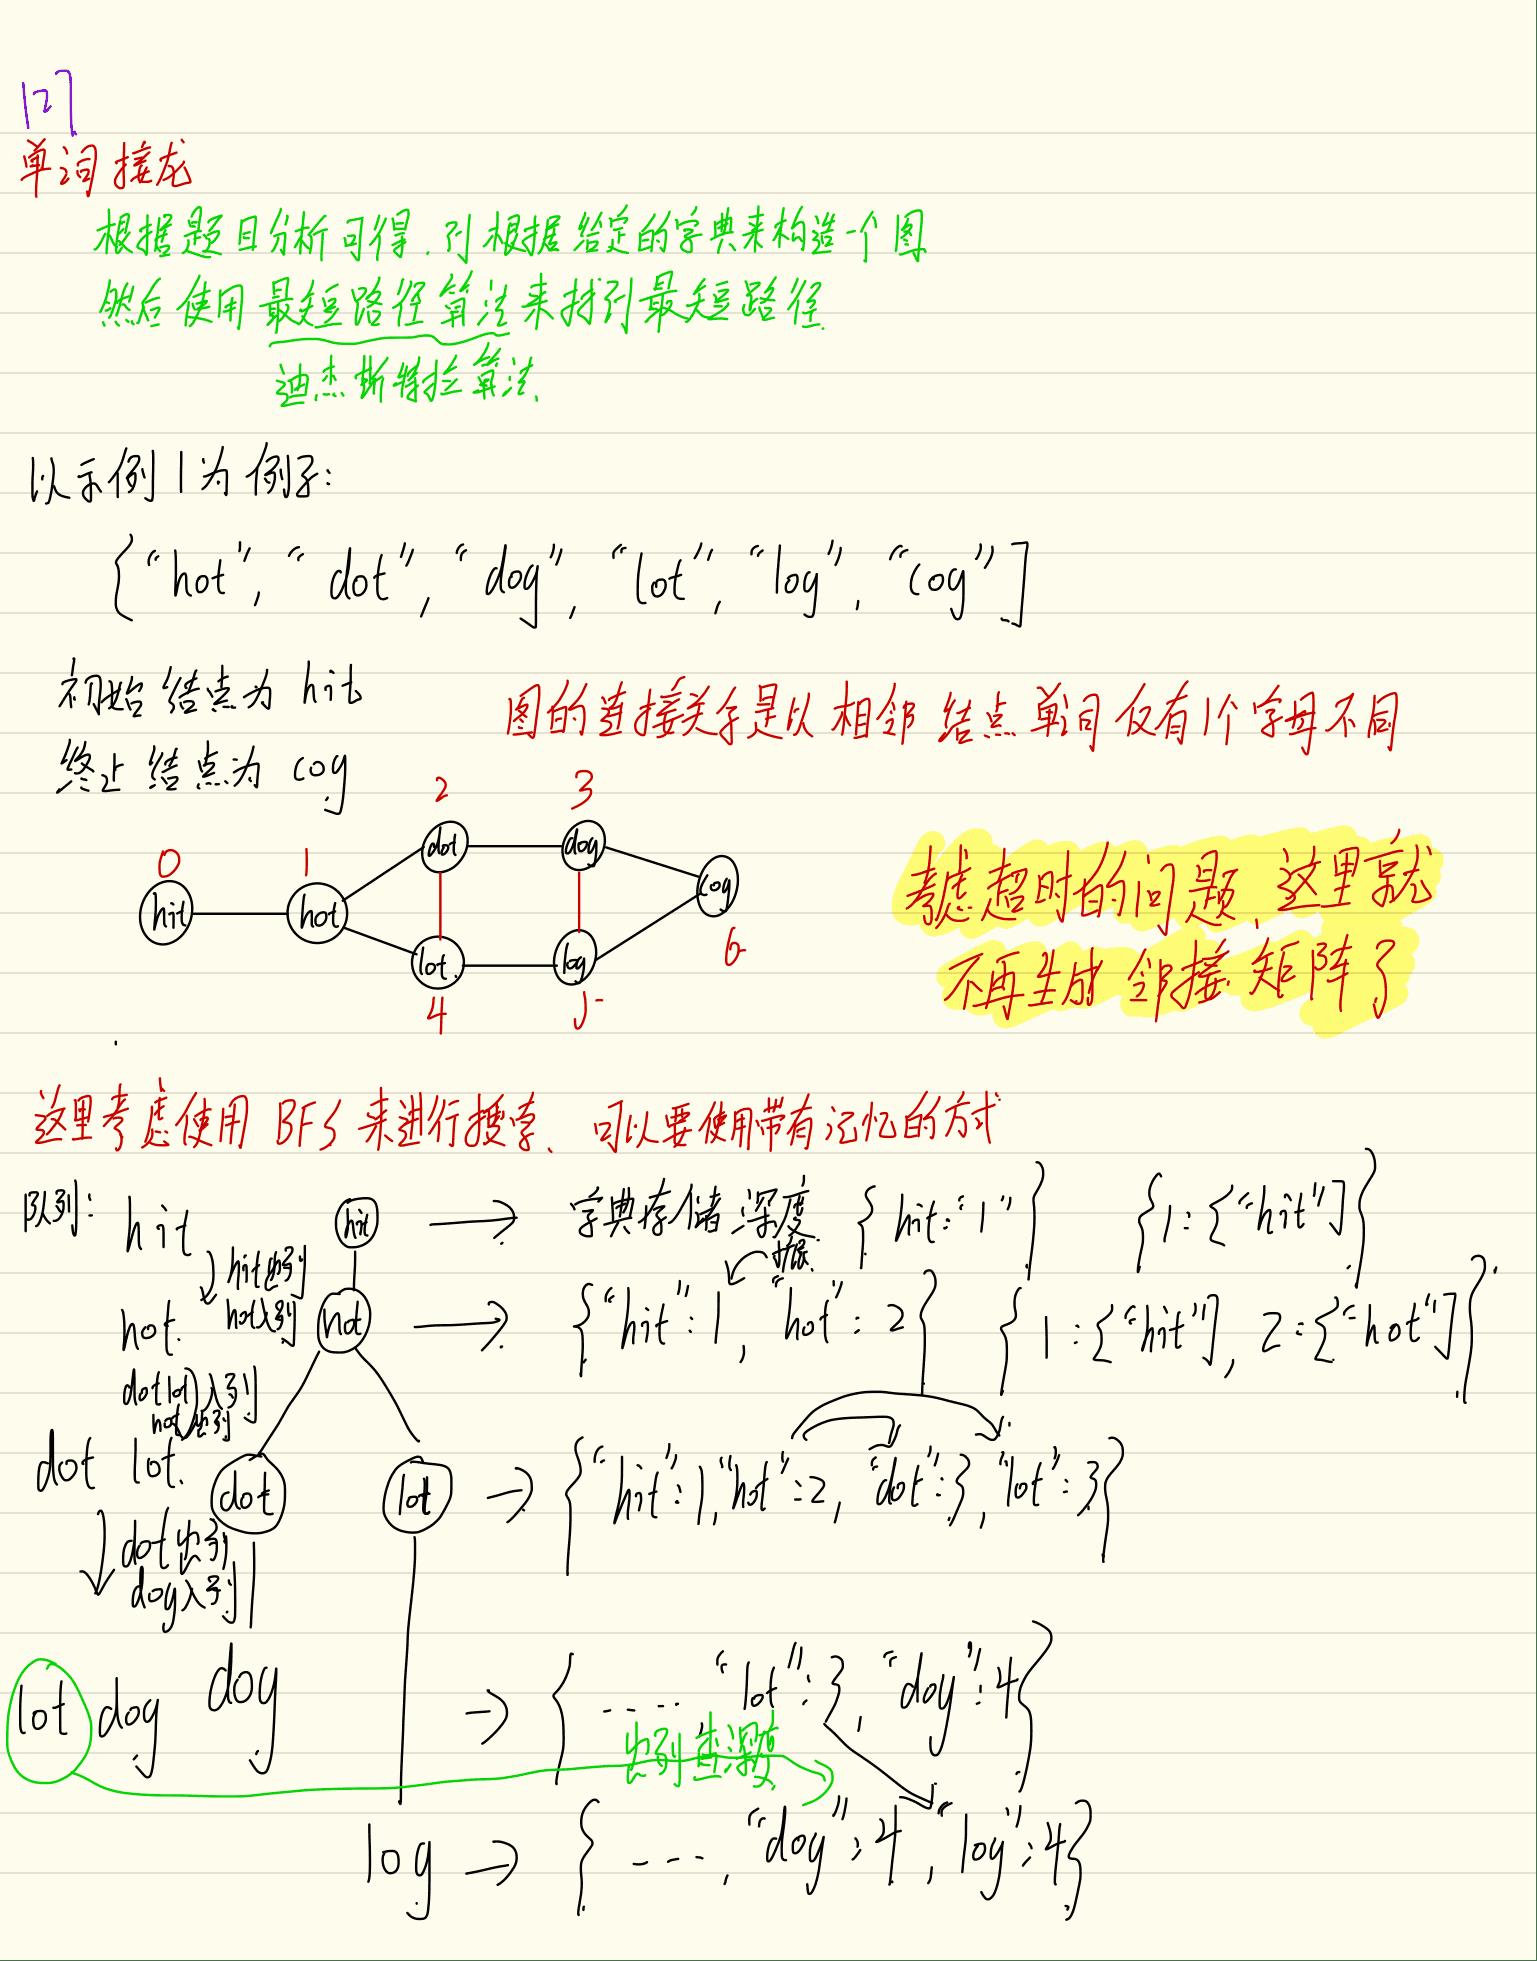 127
单词接龙
根据题目分析可得,可根据给定的字典来构造一个图
然后使用最短路径算法来找到最短路径
迪杰斯特拉算法.
以示例1为例子:
{"hot", "dot", "dog", "lot", "log", "cog"]
初始结点为 hit
图的连接关系是以相邻结点单词仅有1个字母不同
终止结点为 cog
2 3
0 1 dot dog
hit hot cog
lot log 6
4 5
考虑超时的问题,这里就
不再生成邻接矩阵了
这里考虑使用 BFS 来进行搜索、可以要使用带有记忆的方式
队列: hit hit → 字典存储深度 {hit:"1"} {1:["hit"]}
hit出列 扩展
hot. hot入列 hot → {"hit":1, "hot":2} {1:["hit"], 2:["hot"]}
dot lot入列
hot出列
dot lot. dot lot → {"hit":1,"hot":2, "dot":3, "lot":3}
dot出列
dog入列
lot dog dog → {....., "lot":3, "dog":4}
出列查深度
log → {...., "dog":4, "log":4}